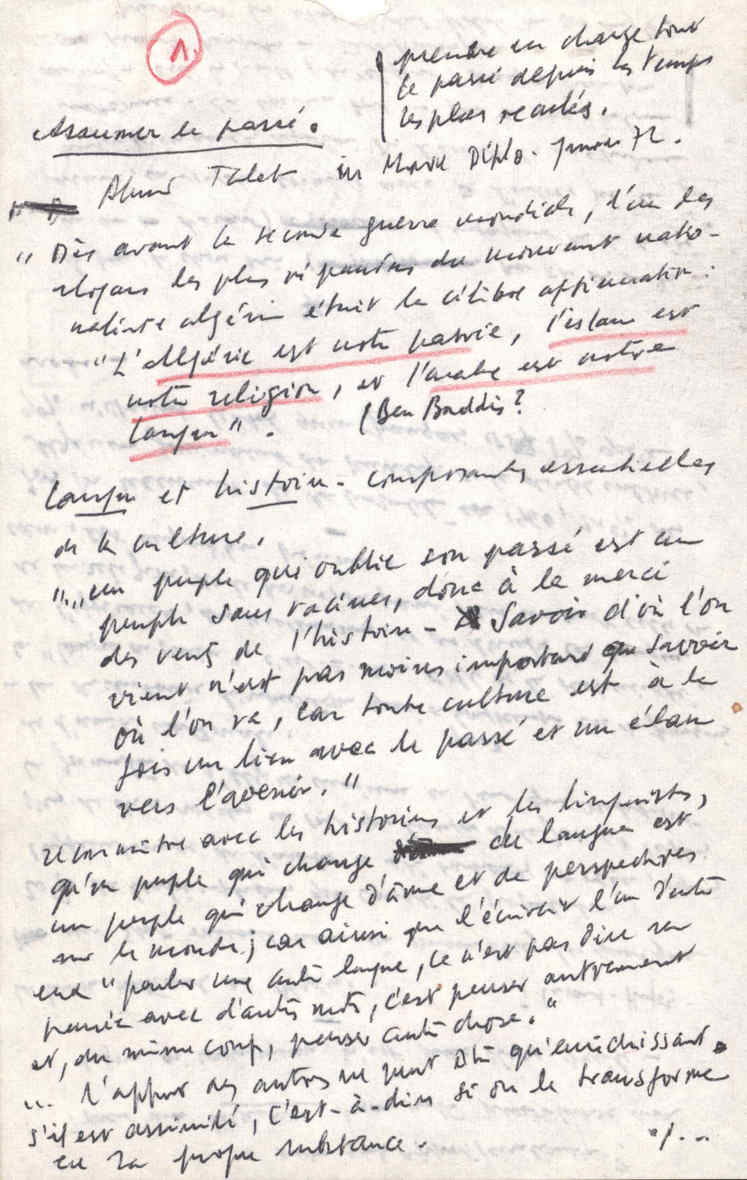 1.
prendre en charge tout
le passé depuis les temps
les plus reculés.
Assumer le passé.
Ahmed Taleb in Monde Diplo. Janvier 72.
"Dès avant la seconde guerre mondiale, l'un des
slogans les plus répandus du mouvement natio-
naliste algérien était la célèbre affirmation :
"L'Algérie est notre patrie, l'islam est
notre religion, et l'arabe est notre
langue". (Ben Baddis?
Langue et histoire - composantes essentielles
de la culture.
"un peuple qui oublie son passé est un
peuple sans racines, donc à la merci
des vents de l'histoire - Savoir d'où l'on
vient n'est pas moins important que savoir
où l'on va, car toute culture est à la
fois un lien avec le passé et un élan
vers l'avenir."
reconnaître avec les historiens et les linguistes,
qu'un peuple qui change de langue est
un peuple qui change d'âme et de perspectives
sur le monde; car ainsi que l'écrivait l'un d'entre
eux "parler une autre langue, ce n'est pas dire sa
pensée avec d'autres mots, c'est penser autrement
et, du même coup, penser autre chose."
... L'apport des autres ne peut être qu'enrichissant
s'il est assimilé, c'est-à-dire si on le transforme
en sa propre substance.
./...